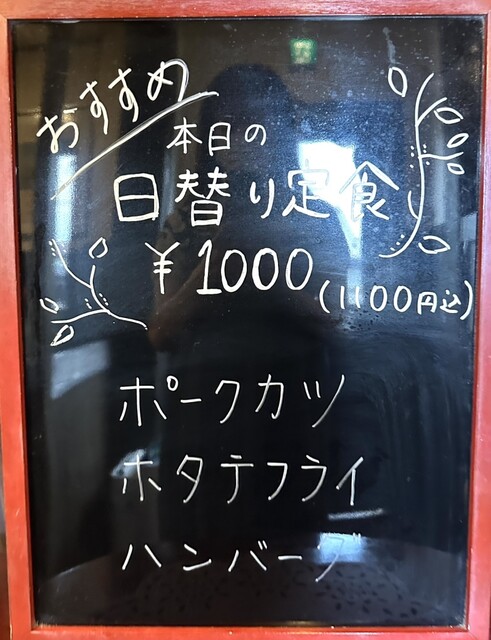 おすすめ
本日の
日替り定食
¥1000
(1100円込)
ポークカツ
ホタテフライ
ハンバーグ